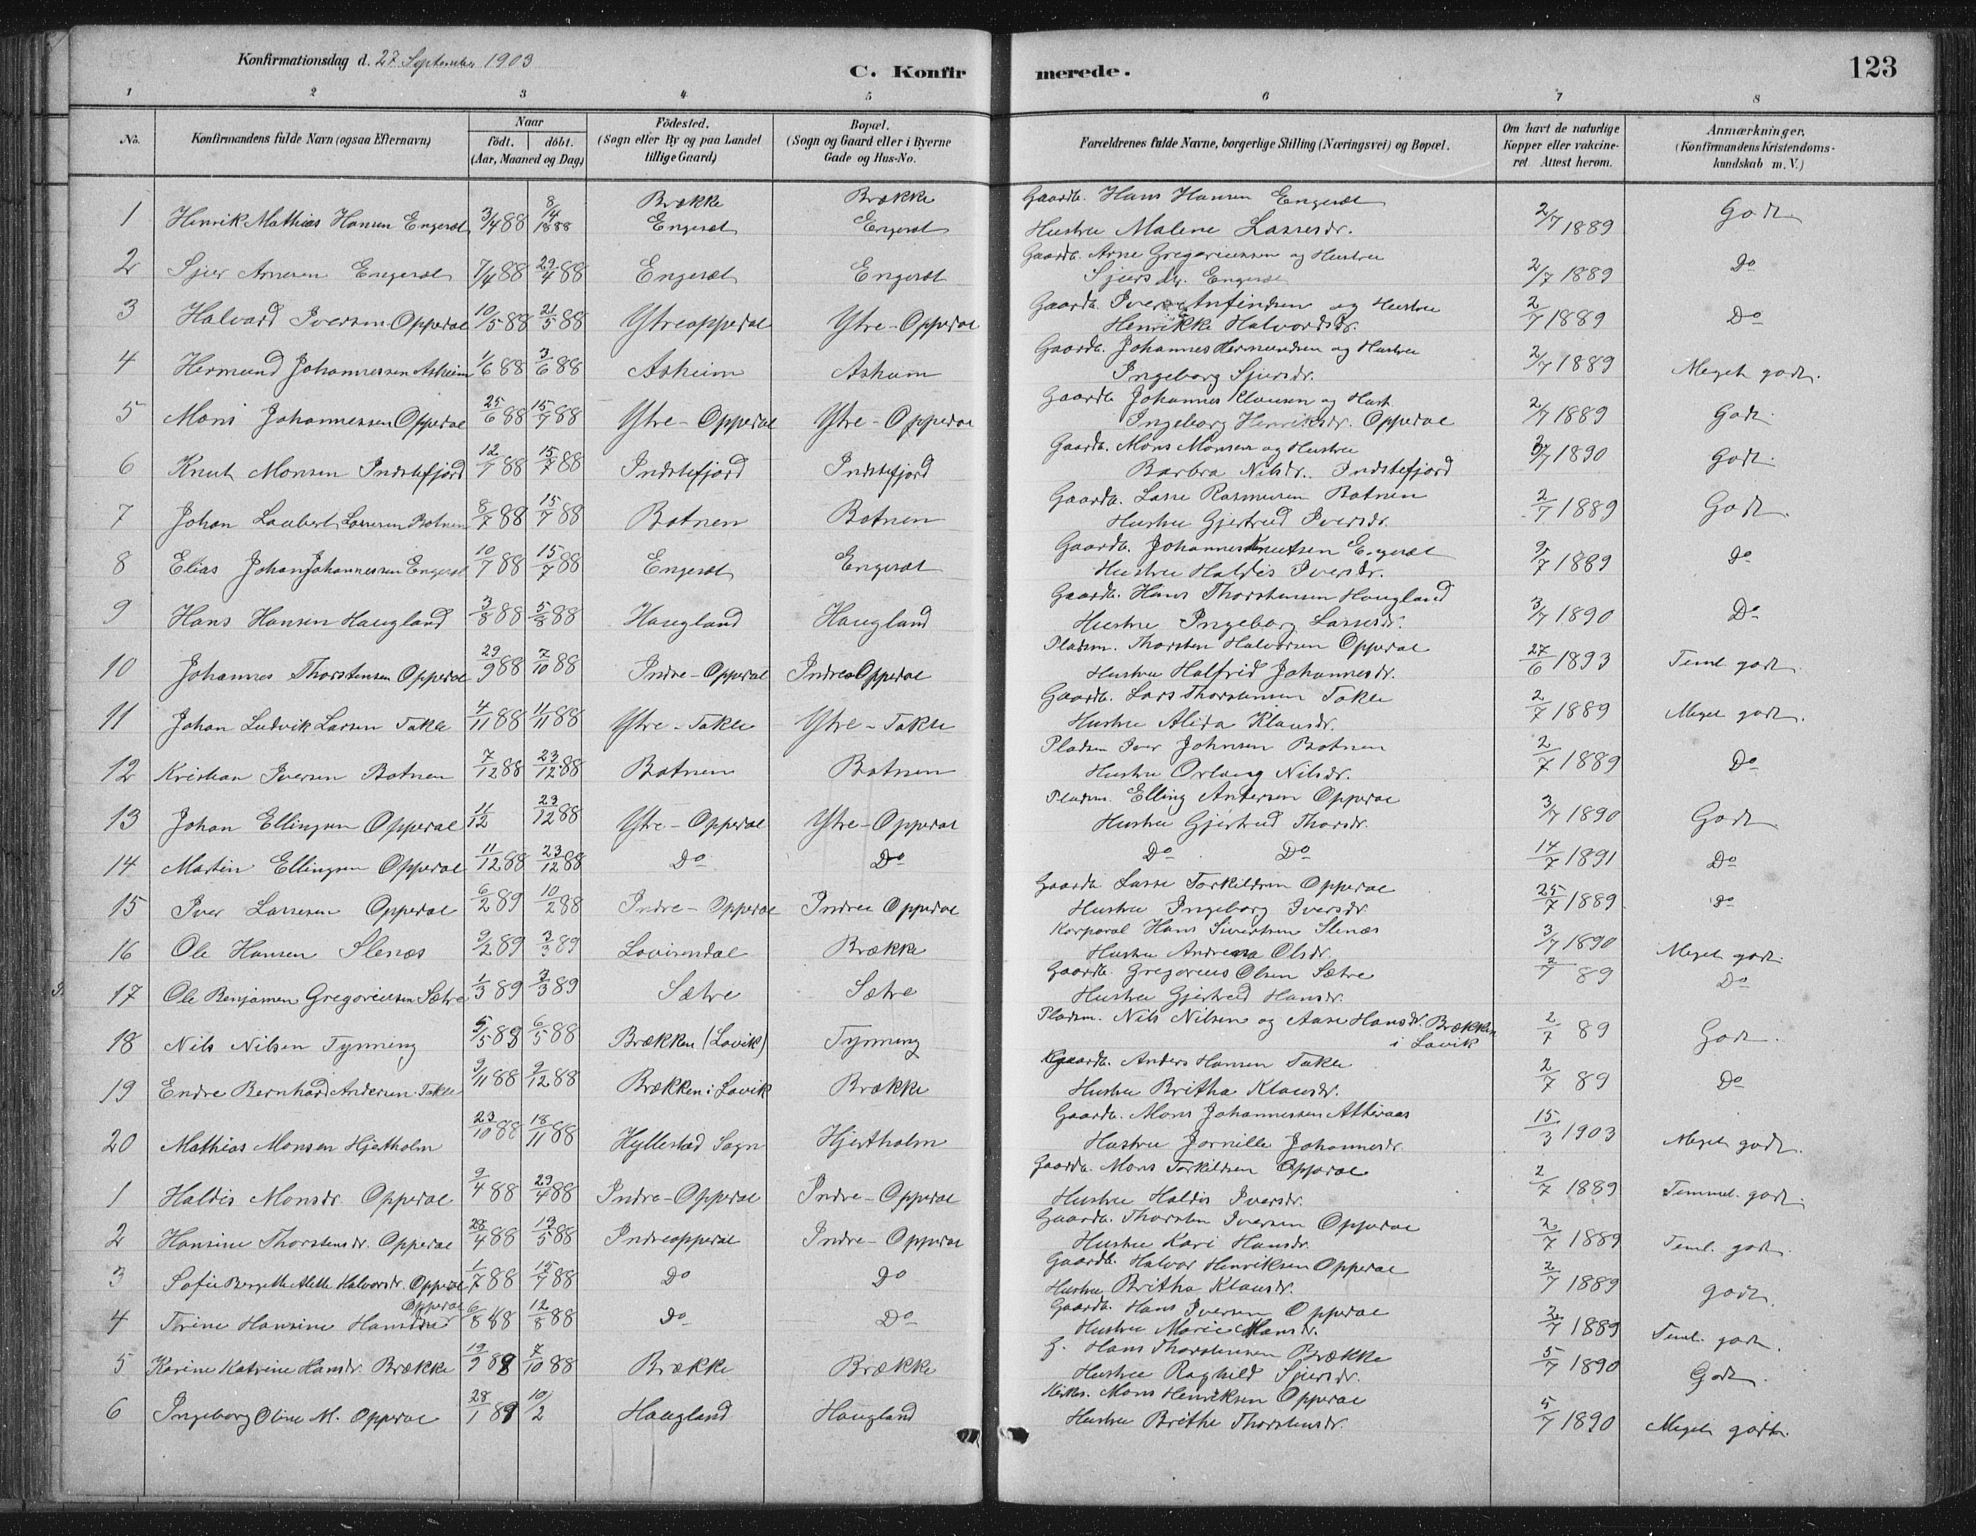 Konfirmationsdag d. 27 September 1903
C. Konfirmerede.
123
1 2 3 4 5 6 7 8
No. Konfirmandens fulde Navn (ogsaa Efternavn) Naar født. døbt. (Aar, Maaned og Dag) Fødested. (Sogn eller By og paa Landet tillige Gaard) Bopæl. (Sogn og Gaard eller i Byerne Gade og Hus-No. Forældrenes fulde Navne, borgerlige Stilling (Næringsvei) og Bopæl. Om havt de naturlige Kopper eller vakcineret Attest herom. Anmærkninger. (Konfirmandens Kristendomskundskab m. V.)
1 Henrik Mathias Hansen Engesæt 3/4 88 8/14 1888 Brække Engesæt Brække Engesæt Gaardb. Hans Hansen Engesæt Hustru Malene Lassesdr. 2/7 1889 Godt
2 Sjur Arnesen Engesæt 7/4 88 29/4 88 Engesæt Engesæt Gaardb. Arne Gregoriussen og Hustru Sjursdr. Engesæt 2/7 1889 Do
3 Halvard Iversen Opperdal 10/5 88 21/5 88 Ytreopperdal Ytre-Opperdal Gaardb. Iver Anfindsen og Hustru Henrikke Halvordsdr. 2/7 1889 Do
4 Hermund Johannessen Asheim 1/6 88 3/6 88 Asheim Asheim Gaardb. Johannes Hermundsen og Hustru Ingeborg Sjursdr. 2/7 1889 Meget godt.
5 Mons Johannessen Opperdal 25/6 88 15/7 88 Ytre-Opperdal Ytre-Opperdal Gaardb. Johannes Klausen og Hust. Ingeborg Henriksdr. Opperdal 2/7 1889 Godt.
6 Knut Monsen Indstefjord 12/7 88 15/7 88 Indstefjord Indstefjord Gaardb. Mons Monsen og Hustru Barbra Nilsdr. Indstefjord 3/7 1890 Godt.
7 Johan Laubert Lassesen Botnen 8/7 88 15/7 88 Botnen Botnen Gaardb. Lasse Rasmussen Botnen Hustru Gjertrud Iversdr. 2/7 1889 Godt.
8 Elias Johan Johannessen Engesæt 10/7 88 15/7 88 Engesæt Engesæt Gaardb. Johannes Knutsen Engesæt Hustru Haldis Iversdr. 2/7 1889 Do
9 Hans Hansen Haugland 3/8 88 5/8 88 Haugland Haugland Gaardb. Hans Thorstensen Haugland Hustru Ingeborg Lassesdr. 3/7 1890 Do
10 Johannes Thorstensen Opperdal 29/9 88 7/10 88 Indre-Opperdal Indre Opperdal Pladsm. Thorsten Halvorsen Opperdal Hustru Halfrid Johannesdr. 27/6 1893 Teml. godt.
11 Johan Ludvik Larsen Takle 4/11 88 11/11 88 Ytre-Takle Ytre-Takle Gaardb. Lars Thorstensen Takle Hustru Alida Klausdr. 2/7 1889 Meget godt.
12 Kristian Iversen Botnen 7/12 88 23/12 88 Botnen Botnen Pladsm Iver Johnsen Botnen Hustru Orlaug Nilsdr. 2/7 1889 Do
13 Johan Ellingsen Opperdal 11/12 23/12 88 Ytre-Opperdal Ytre-Opperdal Pladsm. Elling Andersen Opperdal Hustru Gjertrud Thorsdr. 3/7 1890 Godt
14 Martin Ellingsen Opperdal 11/12 88 23/12 88 Do Do Do Do 14/7 1891 Do
15 Iver Lassesen Opperdal 6/2 89 10/2 88 Indre-Opperdal Indre Opperdal Gaardb Lasse Torkildsen Opperdal Hustru Ingeborg Iversdr 25/7 1889 Do
16 Ole Hansen Slenæs 9/2 89 3/3 89 Lavirendal Brække Korporal Hans Sivertsen Slenæs Hustru Andrea Olsdr. 3/7 1890 Meget godt.
17 Ole Benjamen Gregoriussen Sætre 1/3 89 3/3 89 Sætre Sætre Gaardb. Gregorius Olsen Sætre Hustru Gjertrud Hansdr. 2/7 89 Do
18 Nils Nilsen Tynning 5/5 88 6/5 88 Brækken (Lavik) Tynning Pladsm. Nils Nilsen og Aase Hansdr. Brækken i Lavik 2/7 89 Godt.
19 Endre Bernhard Andersen Takle 9/11 88 9/12 88 Brækken i Lavik Brække Gaardb. Anders Hansen Takle Hustru Britha Klausdr. 2/7 89 Do
20 Mathias Monsen Hjertholm 23/10 88 18/11 88 Hyllestad Sogn Hjertholm Gaardb. Mons Johannessen Atteraas Hustru Jornille Johannesdr. 15/3 1903 Meget godt.
1 Haldis Monsdr. Opperdal 9/4 88 29/4 88 Indre-Opperdal Indre-Opperdal Gaardb. Mons Torkildsen Opperdal Hustru Haldis Iversdr. 2/7 1889 Temmel. godt.
2 Hansine Thorstensdr. Opperdal 28/4 88 19/5 88 Indreopperdal Indre-Opperdal Gaardb. Thorsten Iversen Opperdal Hustru Kari Hansdr. 2/7 1889 Teml. godt.
3 Sofie Bergitte Alette Halvorsdr. Opperdal 1/7 88 15/7 88 Do Do Gaardb. Halvor Henriksen Opperdal Hustru Britha Klausdr. 2/7 1889 godt.
4 Trine Hansine Hansdr Opperdal 6/8 88 12/8 88 Do Do Gaardb. Hans Iversen Opperdal Hustru Marie Hansdr. 2/7 1889 Teml. godt.
5 Karine Katrine Hansdr. Brække 19/9 88 7/10 88 Brække Brække G. Hans Thorstensen Brække Hustru Raghild Sjursdr. 5/7 1890 Godt.
6 Ingeborg Oline M. Opperdal 28/1 89 10/2 Haugland Haugland Mons Henriksen Opperdal Hustru Brithe Thorstensdr. 5/7 1890 Meget godt.